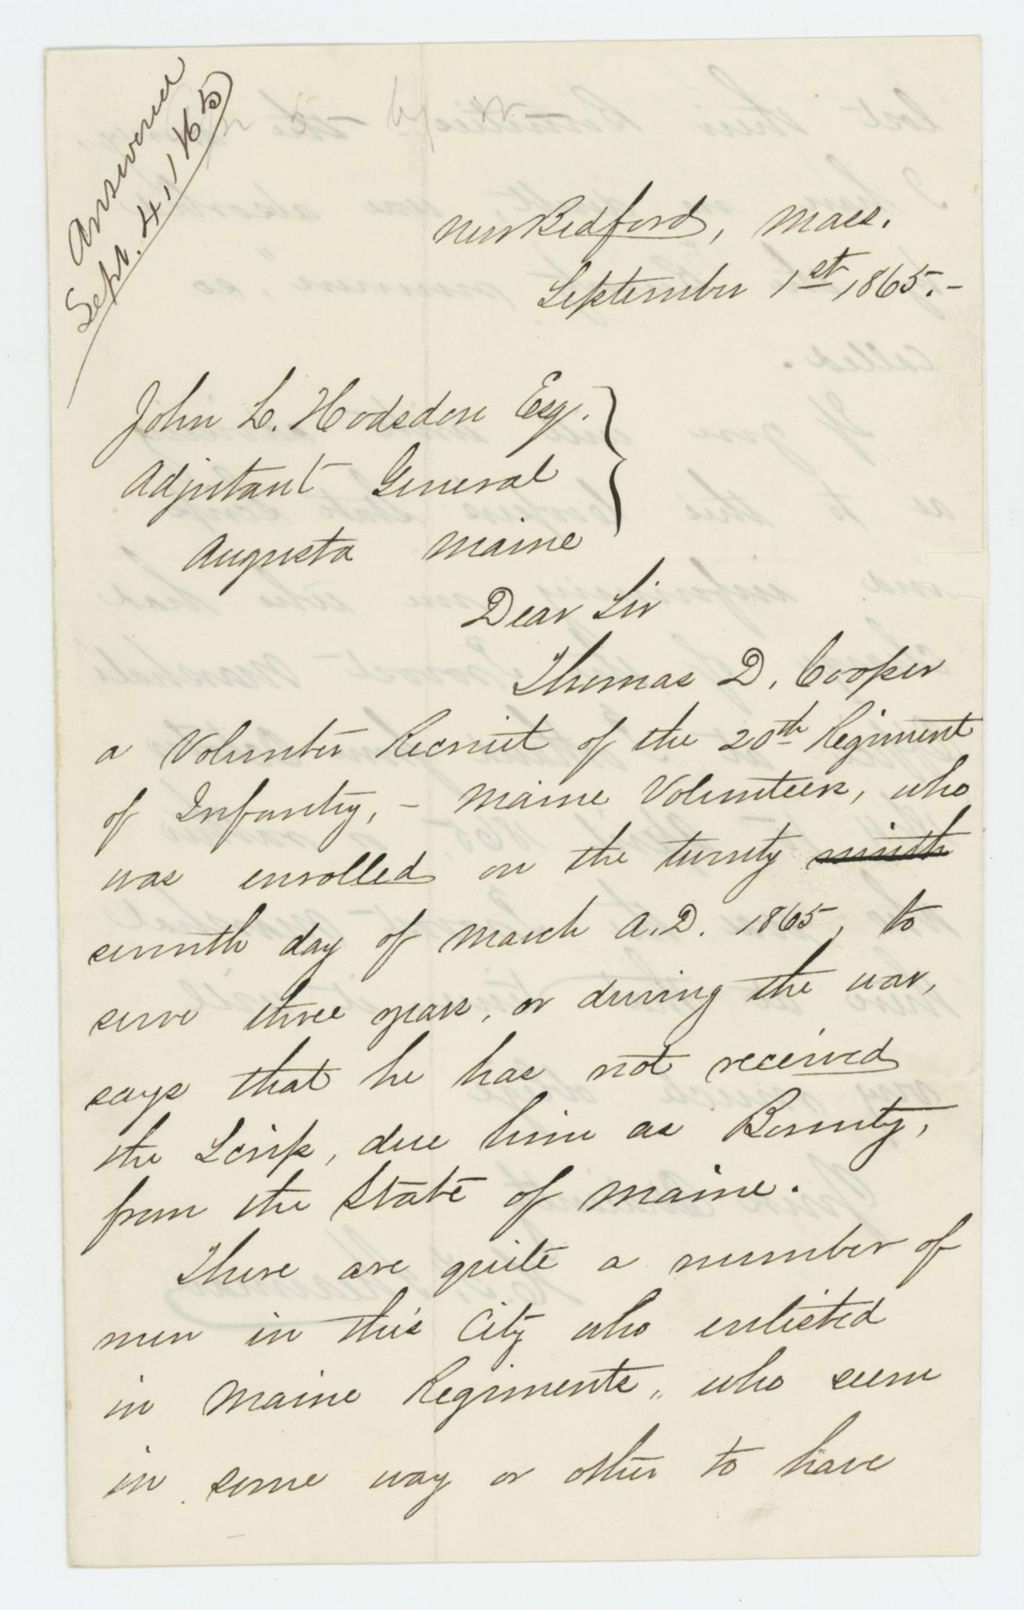 Answered
Sept. 4, 1865
New Bedford, Mass.
September 1st, 1865.-
John L. Hodsdon Esq.
Adjutant General
Augusta Maine
Dear Sir
Thomas D. Cooper
a Volunteer Recruit of the 20th Regiment
of Infantry, - Maine Volunteers, who
was enrolled on the twenty ninth
seventh day of March A.D. 1865, to
serve three years, or during the war,
says that he has not received
the Scrip, due him as Bounty,
from the State of Maine.
There are quite a number of
men in this City who enlisted
in Maine Regiments,, who seem
in some way or other to have